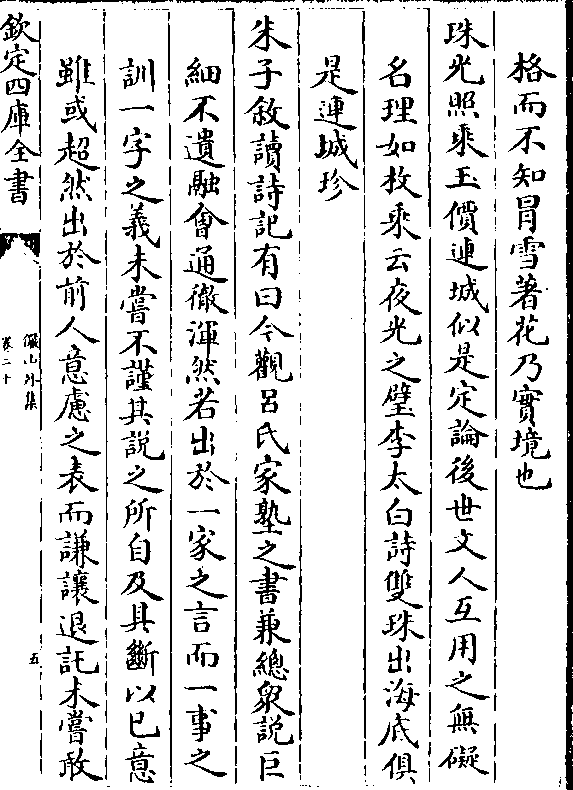 格而不知冒雪著花乃實境也
珠光照乘玉價連城似是定論後世文人互用之無礙
名理如枚乘云夜光之璧李太白詩雙珠出海底俱
是連城珍
朱子敘讀詩記有曰今觀呂氏家塾之書兼總衆説巨
細不遺融會通徹渾然若出於一家之言而一事之
訓一字之義未嘗不謹其説之所自及其斷以已意
雖或超然出於前人意慮之表而謙讓退託未嘗敢
欽定四庫全書
儼山外集
卷二十
五